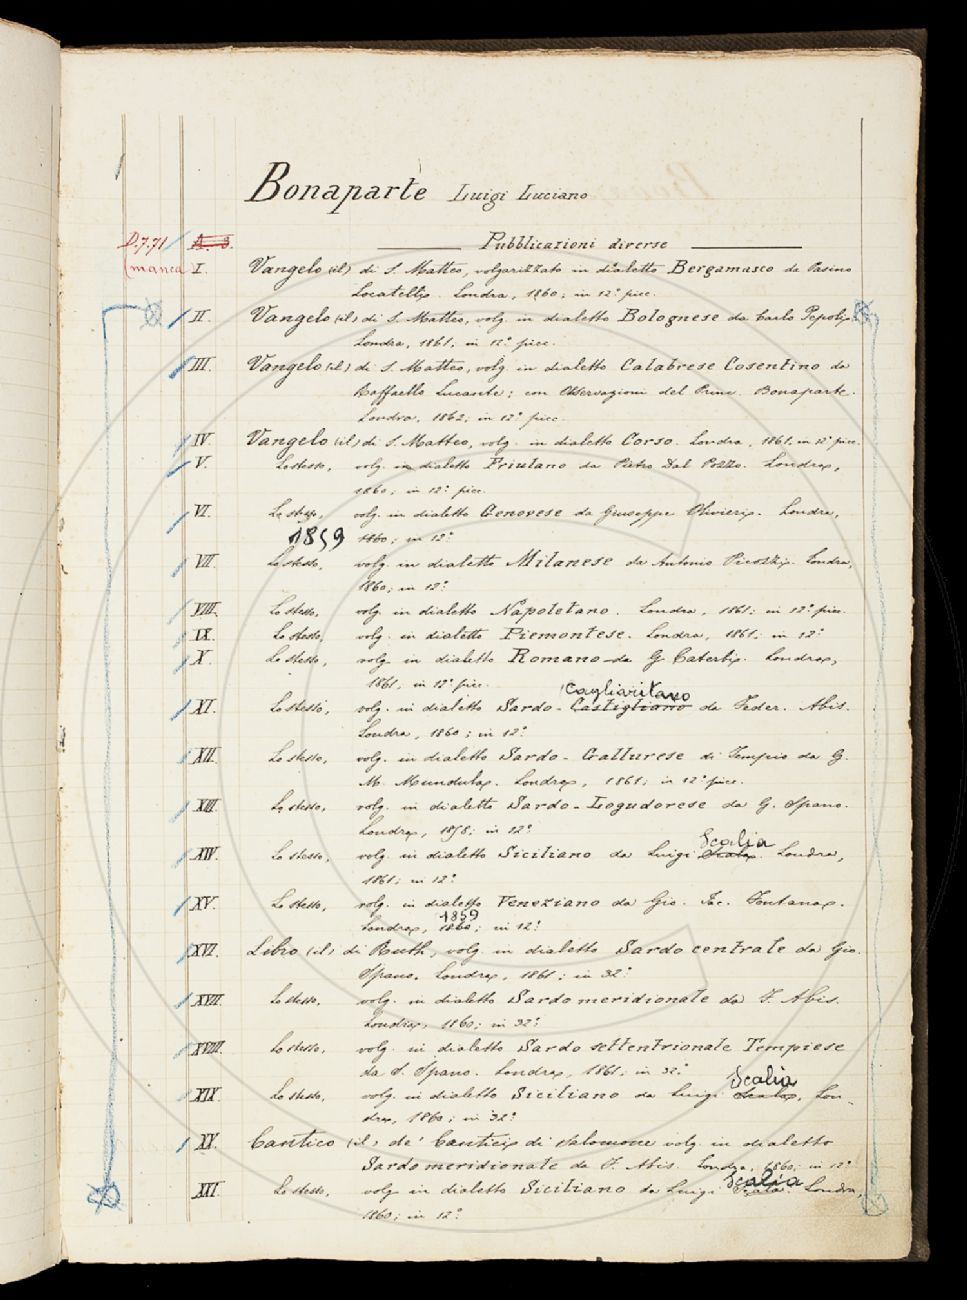 Bonaparte Luigi Luciano
D.7.71 A. 3. Pubblicazioni diverse
(manca) I. Vangelo (il) di S. Matteo, volgarizzato in dialetto Bergamasco da Pasino
Locatelli. Londra, 1860; in 12° picc.
II. Vangelo (il) di S. Matteo, volg. in dialetto Bolognese da Carlo Pepoli.
Londra, 1861, in 12° picc.
III. Vangelo (il) di S. Matteo, volg. in dialetto Calabrese Cosentino da
Raffaello Lucante; con Osservazioni del Princ. Bonaparte.
Londra, 1862; in 12° picc.
IV. Vangelo (il) di S. Matteo, volg. in dialetto Corso. Londra, 1861, in 12° picc.
V. Lo stesso, volg. in dialetto Friulano da Pietro Dal Pozzo. Londra,
1860; in 12° picc.
VI. Lo stesso, volg. in dialetto Genovese da Giuseppe Olivieri. Londra,
1859 1860; in 12°
VII. Lo stesso, volg. in dialetto Milanese da Antonio Picozzi. Londra,
1860; in 12°
VIII. Lo stesso, volg. in dialetto Napoletano. Londra, 1861; in 12° picc.
IX. Lo stesso, volg. in dialetto Piemontese. Londra, 1861; in 12°
X. Lo stesso, volg. in dialetto Romano da G. Caterbi. Londra,
1861; in 12° picc.
Cagliaritano
XI. Lo stesso, volg. in dialetto Sardo-Castigliano da Feder. Abis.
Londra, 1860; in 12°
XII. Lo stesso, volg. in dialetto Sardo-Gallurese di Tempio da G.
M. Mundula. Londra, 1861; in 12° picc.
XIII. Lo stesso, volg. in dialetto Sardo-Logudorese da G. Spano.
Londra, 1858; in 12°
Scalia
XIV. Lo stesso, volg. in dialetto Siciliano da Luigi Londra,
1861; in 12°
XV. Lo stesso, volg. in dialetto Veneziano da Gio. Jac. Fontana.
1859
Londra, 1860; in 12°
XVI. Libro (il) di Ruth, volg. in dialetto Sardo centrale da Gio.
Spano. Londra, 1861; in 32°
XVII. Lo stesso, volg. in dialetto Sardo meridionale da F. Abis.
Londra, 1860; in 32°
XVIII. Lo stesso, volg. in dialetto Sardo settentrionale Tempiese
da S. Spano. Londra, 1861; in 32°
Scalia
XIX. Lo stesso, volg. in dialetto Siciliano da Luigi Lon-
dra, 1860; in 32°
XX. Cantico (il) de' Cantici di Salomone volg. in dialetto
Sardo meridionale da F. Abis. Londra, 1860; in 12°
Scalia
XXI. Lo stesso, volg. in dialetto Siciliano da Luigi Londra,
1860; in 12°